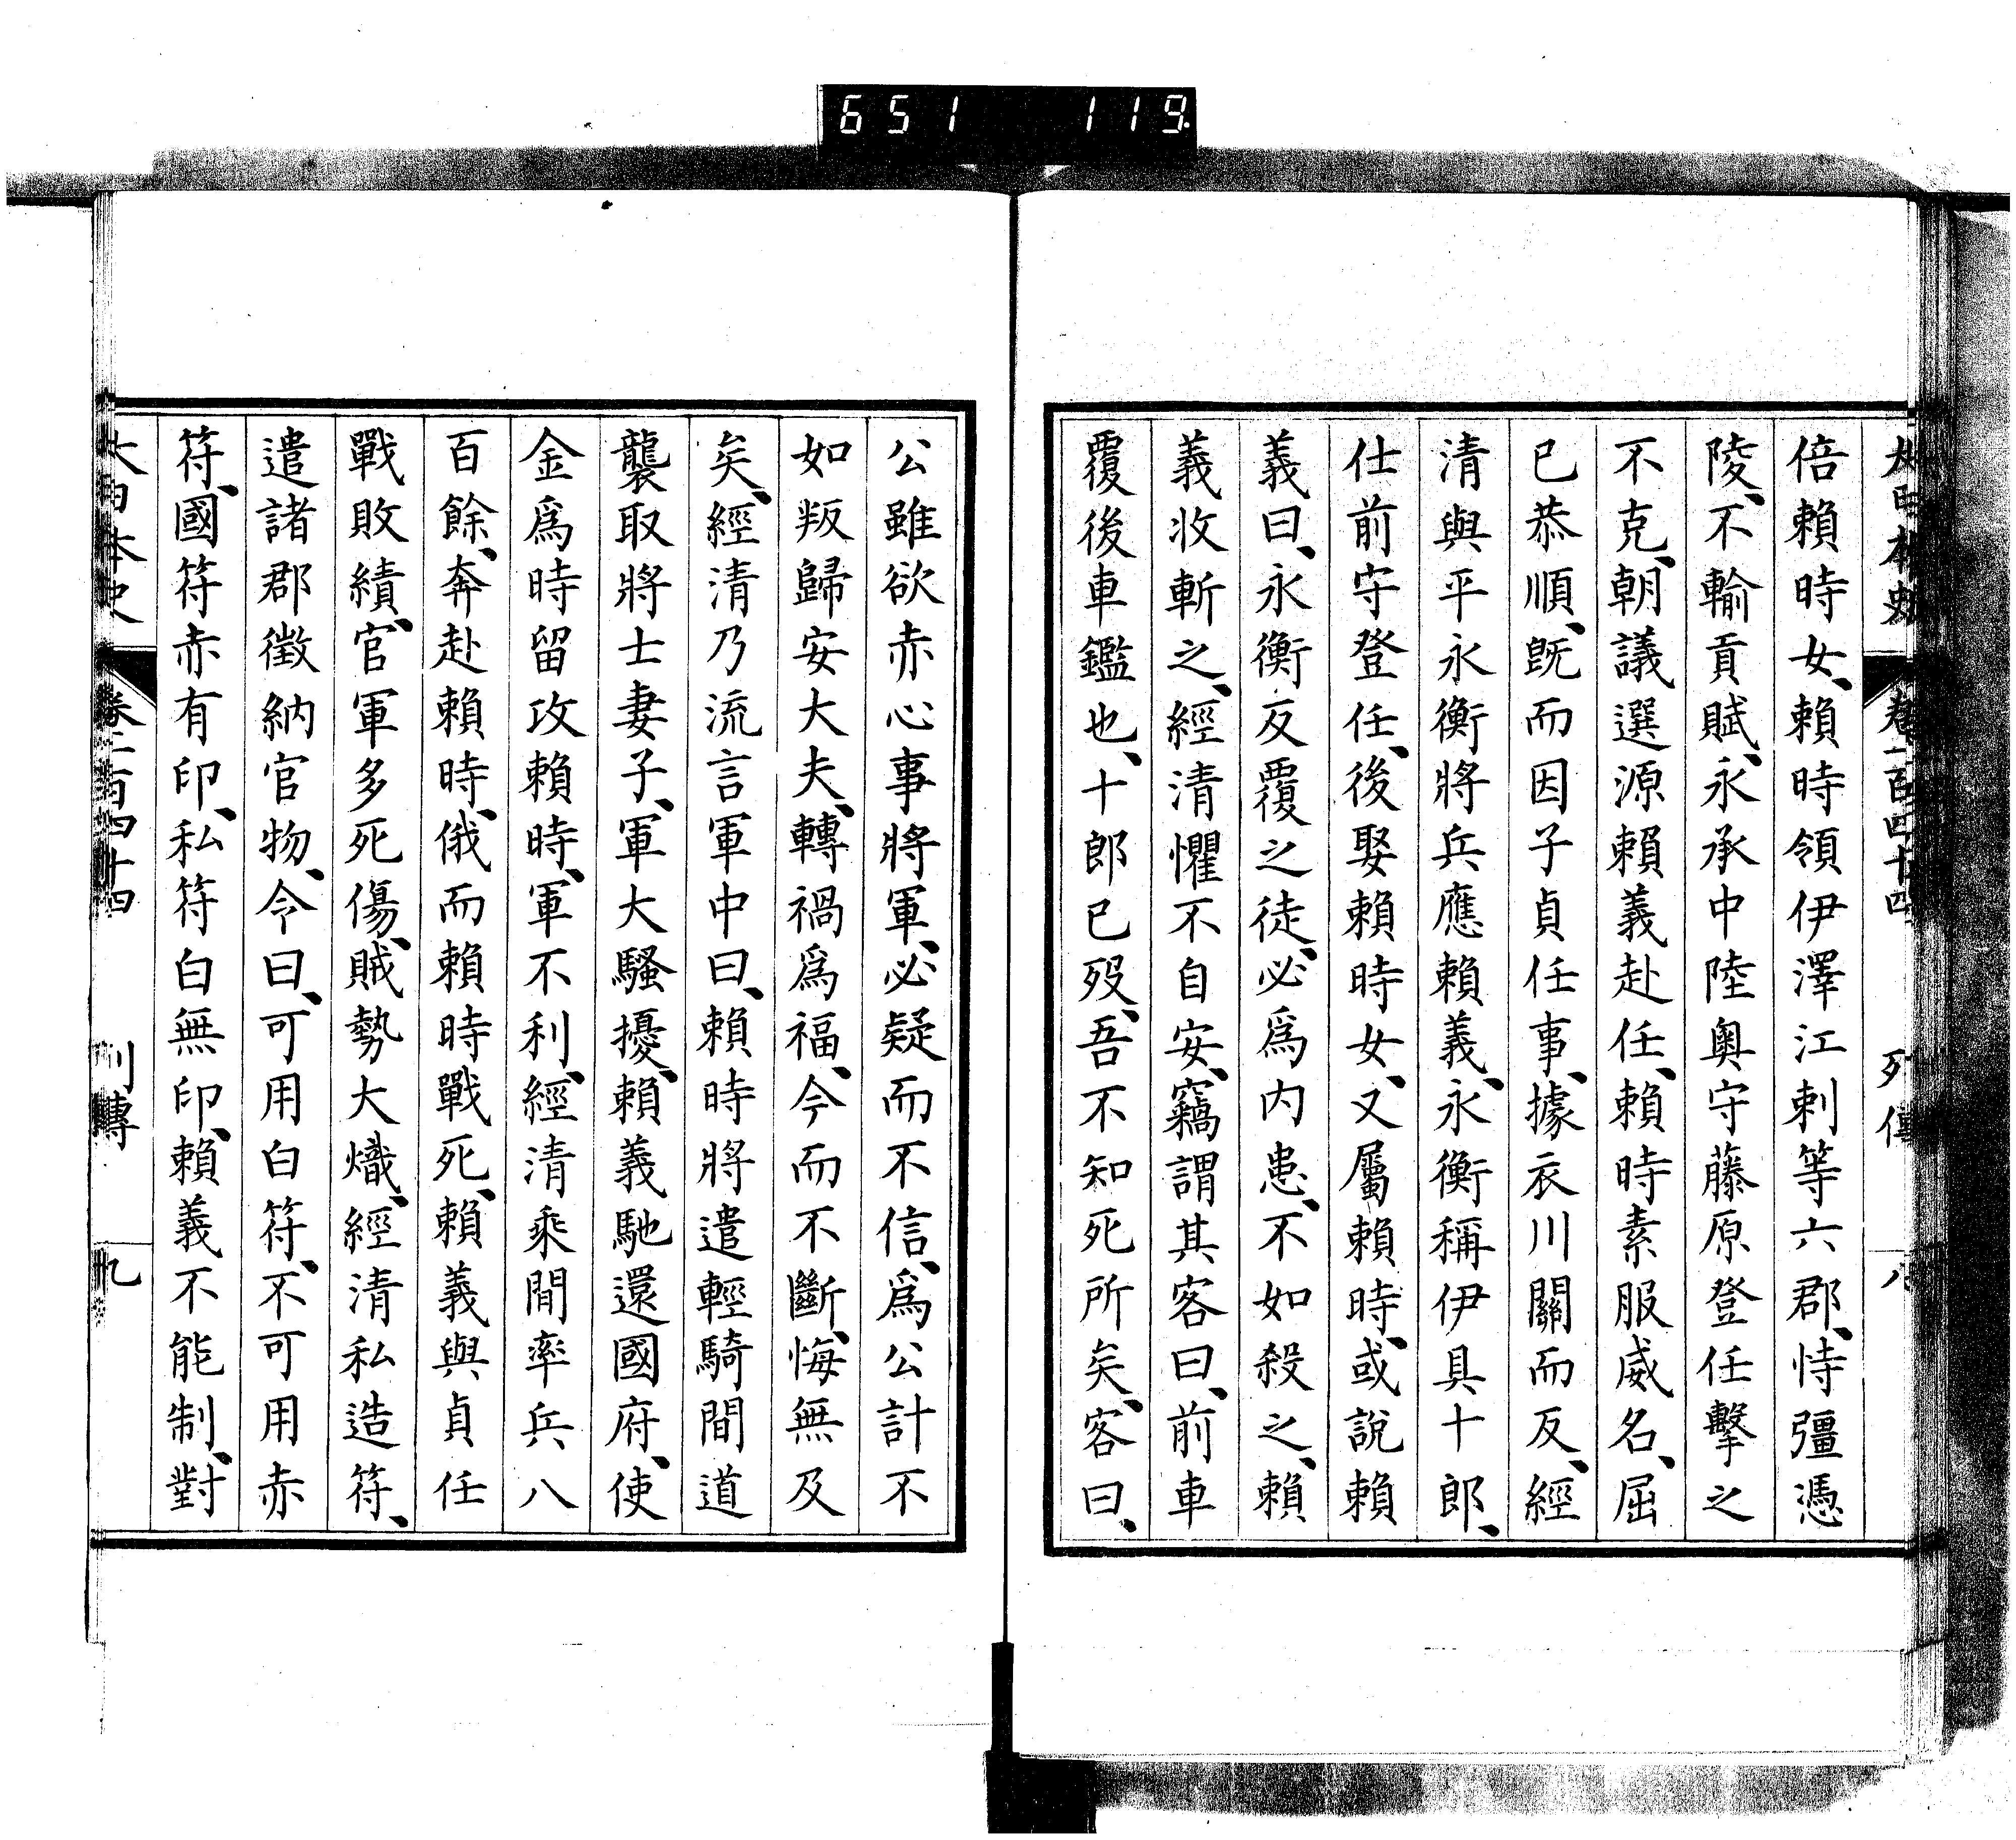 651 119
大日本史 卷一百四十四 列傳 八
倍賴時女、賴時領伊澤江刺等六郡、恃彊憑
陵、不輸貢賦、永承中陸奧守藤原登任擊之
不克、朝議選源賴義赴任、賴時素服威名、屈
已恭順、旣而因子貞任事、據衣川關而反、經
清與平永衡將兵應賴義、永衡稱伊具十郎、
仕前守登任、後娶賴時女、又屬賴時、或說賴
義曰、永衡反覆之徒、必爲内患、不如殺之、賴
義收斬之、經清懼不自安、竊謂其客曰、前車
覆後車鑑也、十郎已歿、吾不知死所矣、客曰、
公雖欲赤心事將軍、必疑而不信、爲公計不
如叛歸安大夫、轉禍爲福、今而不斷、悔無及
矣、經清乃流言軍中曰、賴時將遣輕騎間道
襲取將士妻子、軍大騷擾、賴義馳還國府、使
金爲時留攻賴時、軍不利、經清乘間率兵八
百餘、奔赴賴時、俄而賴時戰死、賴義與貞任
戰敗績、官軍多死傷、賊勢大熾、經清私造符、
遣諸郡徵納官物、令曰、可用白符、不可用赤
符、國符赤有印、私符白無印、賴義不能制、對
大日本史 卷一百四十四 列傳 九